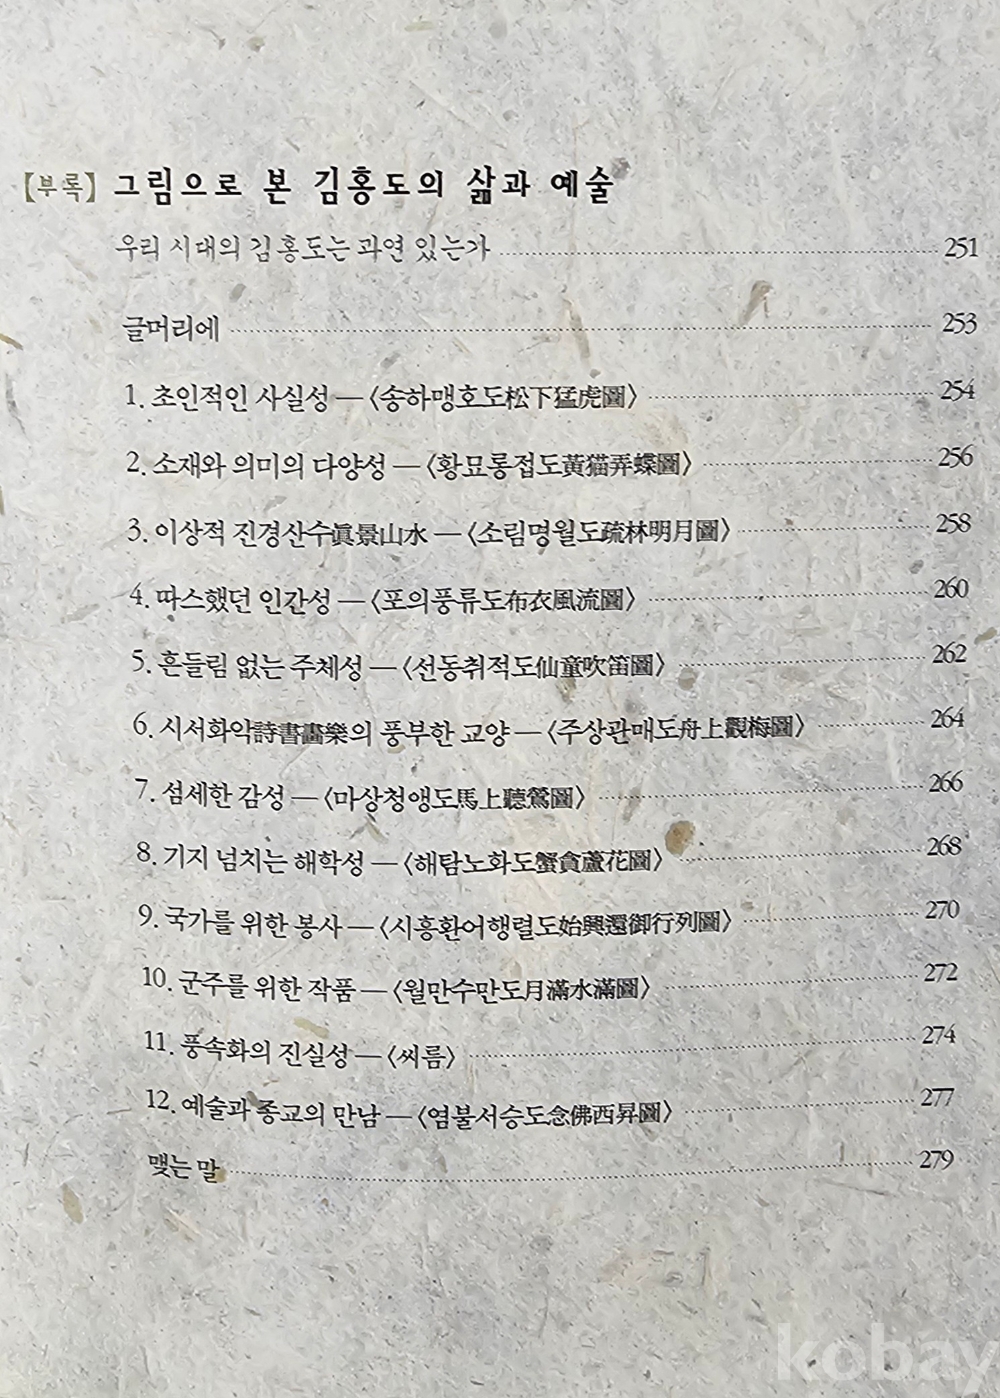 【부록】 그림으로 본 김홍도의 삶과 예술
우리 시대의 김홍도는 과연 있는가 251
글머리에 253
1. 초인적인 사실성 — 〈송하맹호도松下猛虎圖〉 254
2. 소재와 의미의 다양성 — 〈황묘롱접도黃猫弄蝶圖〉 256
3. 이상적 진경산수眞景山水 — 〈소림명월도疏林明月圖〉 258
4. 따스했던 인간성 — 〈포의풍류도布衣風流圖〉 260
5. 흔들림 없는 주체성 — 〈선동취적도仙童吹笛圖〉 262
6. 시서화악詩書畵樂의 풍부한 교양 — 〈주상관매도舟上觀梅圖〉 264
7. 섬세한 감성 — 〈마상청앵도馬上聽鶯圖〉 266
8. 기지 넘치는 해학성 — 〈해탐노화도蟹貪蘆花圖〉 268
9. 국가를 위한 봉사 — 〈시흥환어행렬도始興還御行列圖〉 270
10. 군주를 위한 작품 — 〈월만수만도月滿水滿圖〉 272
11. 풍속화의 진실성 — 〈씨름〉 274
12. 예술과 종교의 만남 — 〈염불서승도念佛西昇圖〉 277
맺는 말 279
kobay